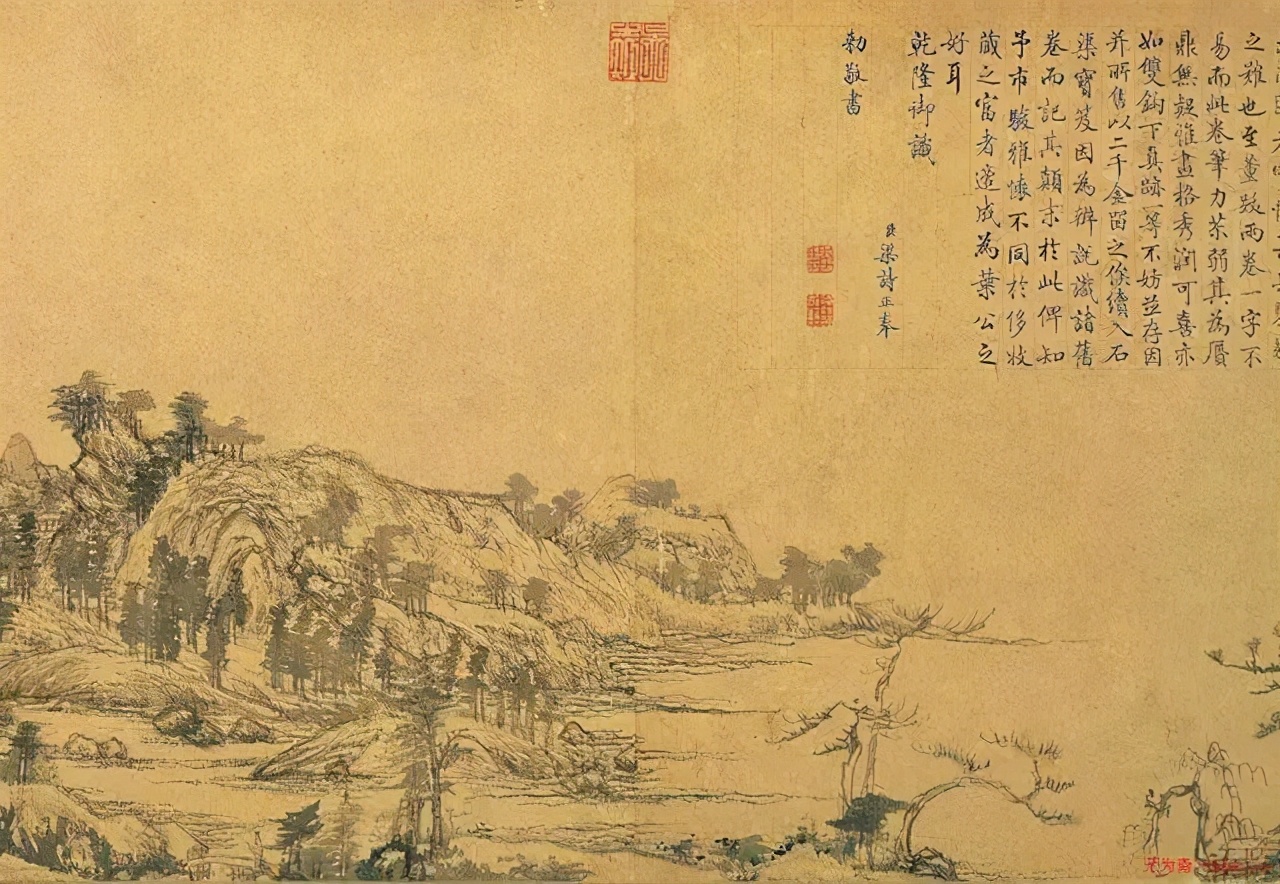 之難也至董跋兩卷一字不
易而此卷筆力苶弱其為贗
鼎無疑惟畫格秀潤可喜亦
如雙鈎下真跡一等不妨並存因
并所售以二千金留之俟續入石
渠寶笈因為辨說識諸舊
卷而記其顛末於此俾知
予市駿雅懷不同於侈收
藏之富者遂成為葉公之
好耳
乾隆御識
臣梁詩正奉
勅敬書